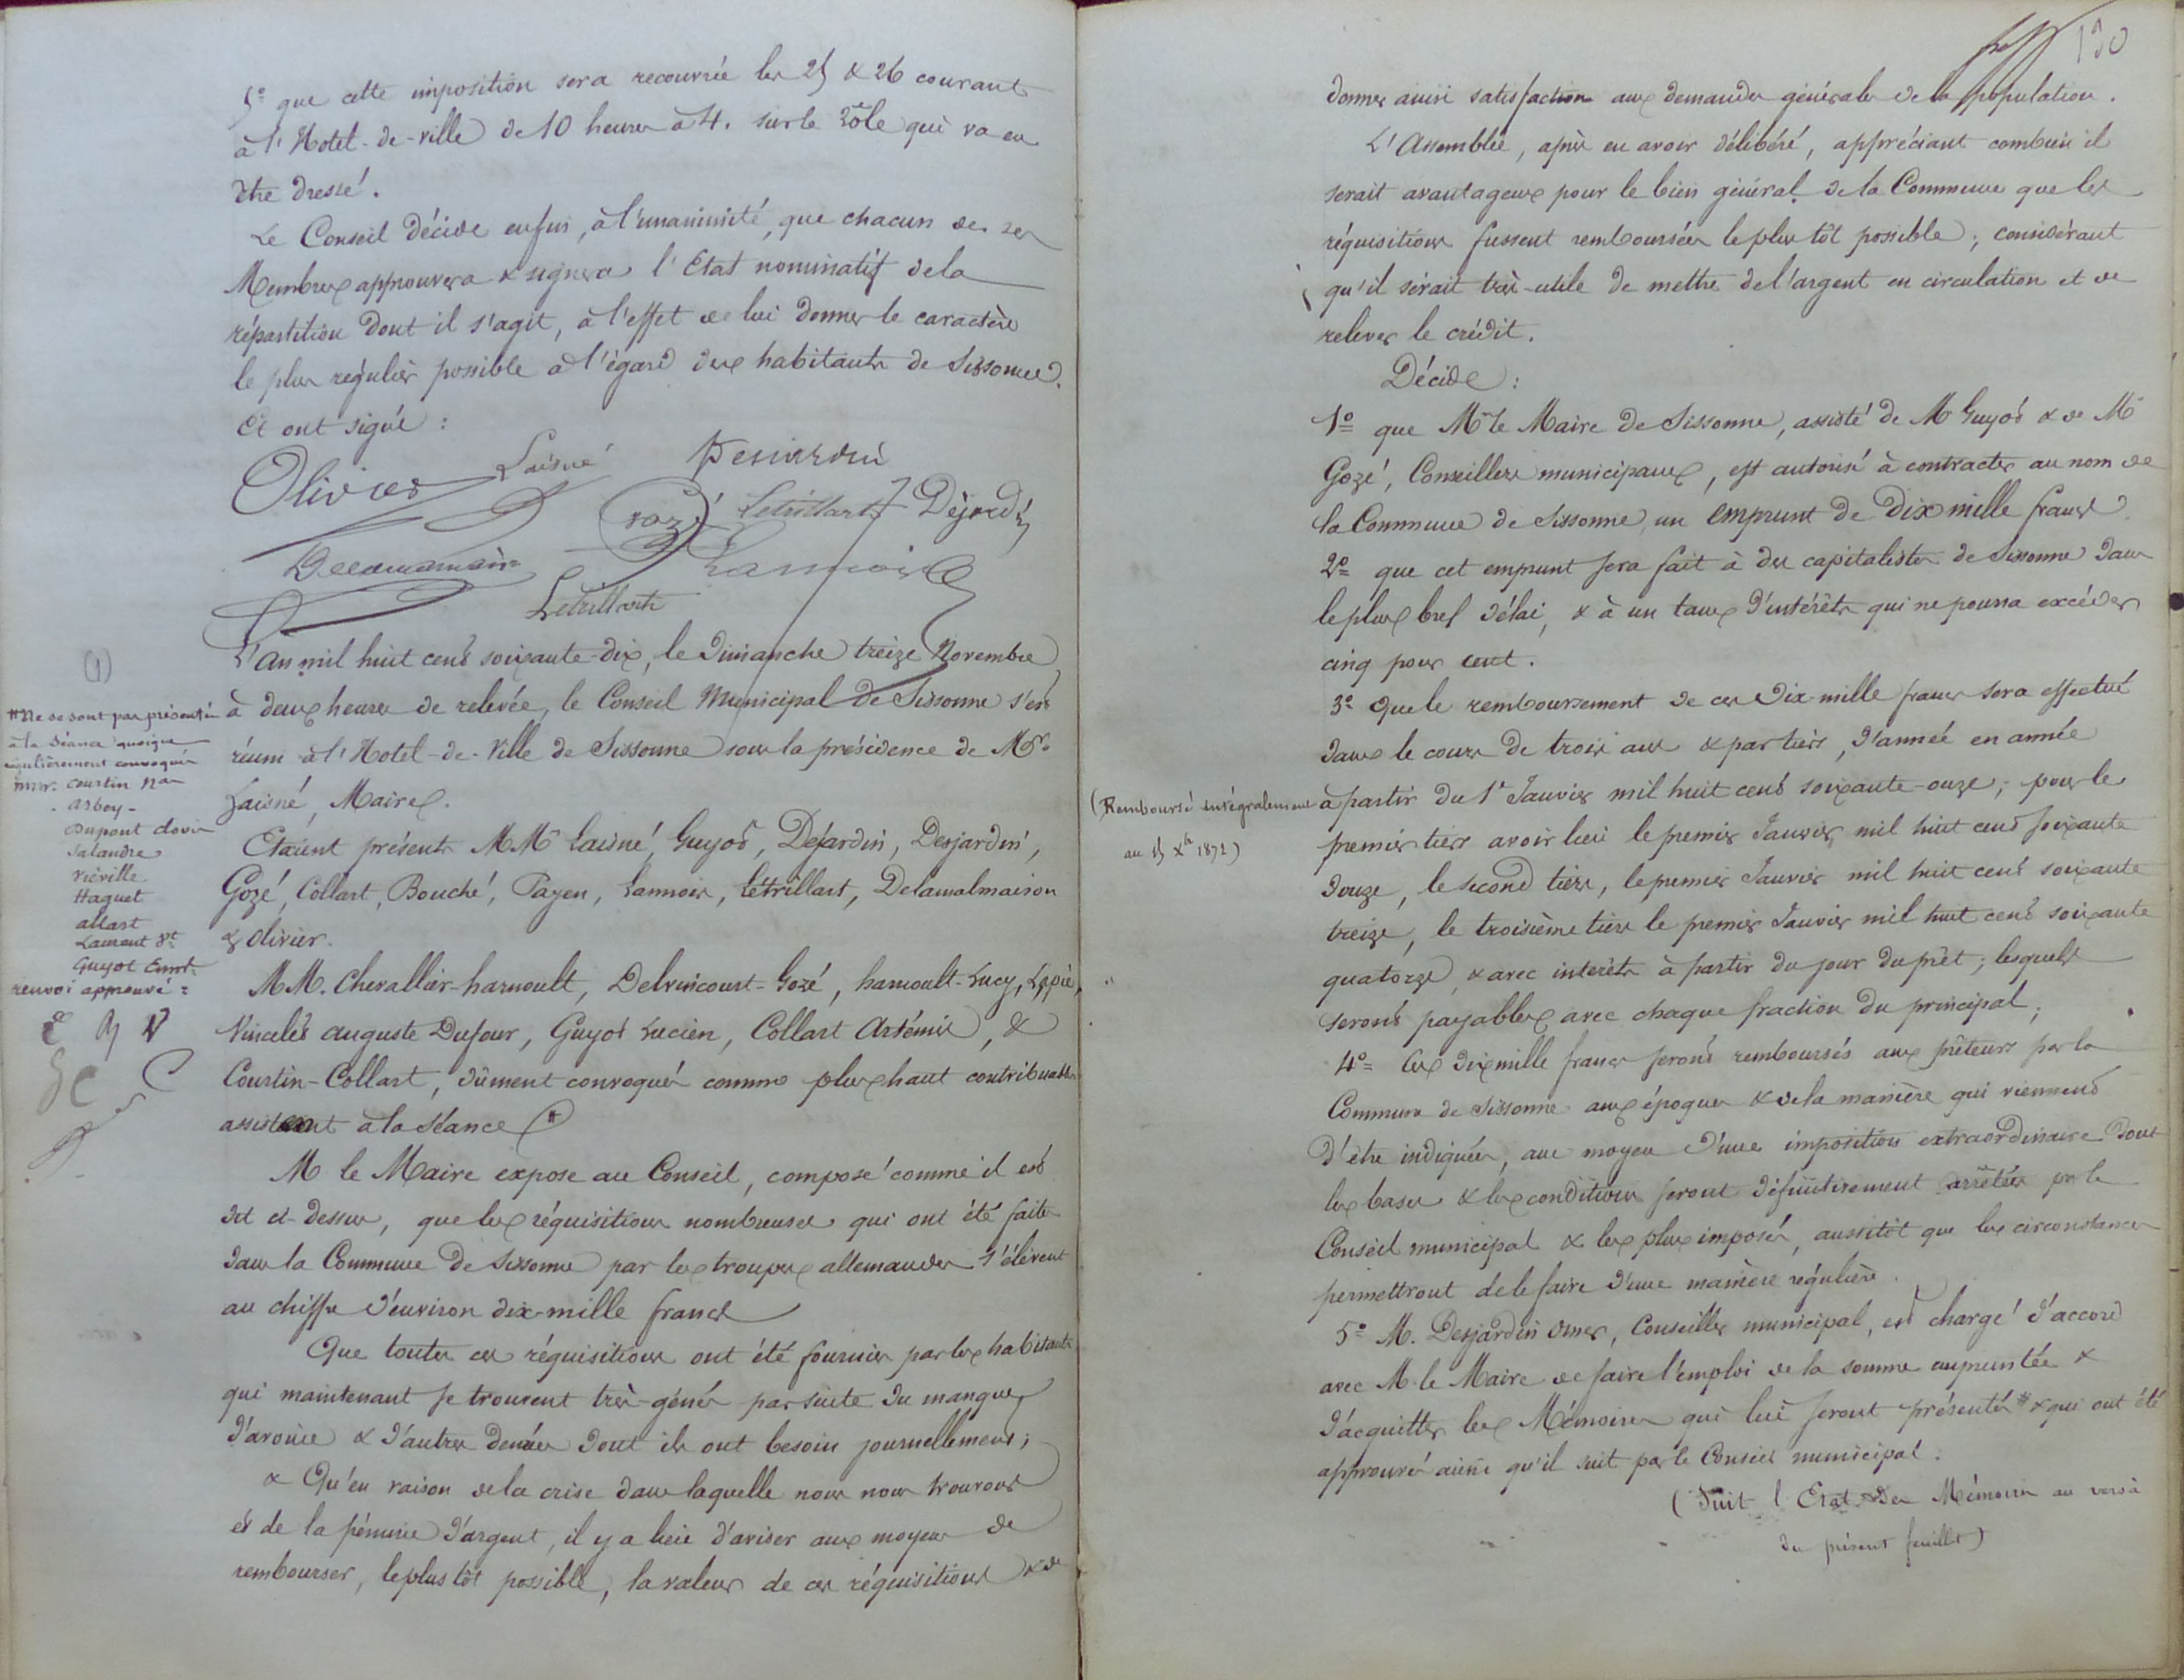 5º que cette imposition sera recouvrée les 25 & 26 courant
à l'Hotel-de-ville de 10 heures à 4. sur le Rôle qui va en
être dressé.
Le Conseil décide enfin, à l'unanimité, que chacun de ses
Membres approuvera & signera l'Etat nominatif de la
répartition dont il s'agit, à l'effet de lui donner le caractère
le plus régulier possible à l'égard des habitants de Sissonne.
Et ont signé :
Olivier Laisné Desjardin
Gozé Létrillart Déjardin
Delamalmaison Lannois
Létrillart
L'An mil huit cent soixante-dix, le dimanche treize Novembre
à deux heures de relevée, le Conseil Municipal de Sissonne s'est
réuni à l'Hotel-de-Ville de Sissonne sous la présidence de Mr
Laisné, Maire.
Etaient présents MM Laisné, Guyot, Dejardin, Desjardin,
Gozé, Collart, Bouché, Payen, Lannois, Létrillart, Delamalmaison
& Olivier.
MM. Chevallier-harnoult, Delvincourt-Gozé, harnoult-Lucy, Lppie,
Vincelet auguste Dufour, Guyot Lucien, Collart Artémis, &
Courtin-Collart, dûment convoqués comme plus haut contribuables
assistent à la séance #
M le Maire expose au Conseil, composé comme il est
dit ci-dessus, que les réquisitions nombreuses qui ont été faites
dans la Commune de Sissonne par les troupes allemandes s'élèvent
au chiffre d'environ dix-mille francs
Que toutes ces réquisitions ont été fournies par les habitants
qui maintenant se trouvent très-gênés par suite du manque
d'avoine & d'autres denrées dont ils ont besoin journellement ;
& Qu'en raison de la crise dans laquelle nous nous trouvons
et de la pénurie d'argent, il y a lieu d'aviser aux moyens de
rembourser, le plus tôt possible, la valeur de ces réquisitions & de
(1)
# Ne se sont pas présentés
à la Séance quoique
régulièrement convoqués
MMrs. Courtin Nas
- Arbey -
Dupont clovis
Salandre
Viéville
Haquet
allart
Laurent Vt
Guyot Ernst.
renvoi approuvé :
130
donner ainsi satisfaction aux demandes générales de la population.
L'Assemblée, après en avoir délibéré, appréciant combien il
serait avantageux pour le bien général de la Commune que les
réquisitions fussent remboursées le plus tôt possible ; considérant
qu'il serait très-utile de mettre de l'argent en circulation et de
relever le crédit.
Décide :
1º que Mr le Maire de Sissonne, assisté de M Guyot & de M
Gozé, Conseillers municipaux, est autorisé à contracter au nom de
la Commune de Sissonne, un emprunt de Dix mille francs
2º que cet emprunt sera fait à des capitalistes de Sissonne dans
le plus bref délai, & à un taux d'intérêts qui ne pourra excéder
cinq pour cent.
3º Que le remboursement de ces Dix-mille francs sera effectué
dans le cours de trois ans & par tiers, d'année en année
à partir du 1er Janvier mil huit cent soixante-onze ; pour le
premier tiers avoir lieu le premier Janvier mil huit cent soixante
douze, le second tiers, le premier Janvier mil huit cent soixante
treize, le troisième tiers le premier Janvier mil huit cent soixante
quatorze, & avec intérêts à partir du jour du prêt ; lesquels
seront payables avec chaque fraction du principal ;
4º Ces dix mille francs seront remboursés aux prêteurs par la
Commune de Sissonne aux époques & de la manière qui viennent
d'être indiquées, au moyen d'une imposition extraordinaire dont
les bases & les conditions seront définitivement arrêtées par le
Conseil municipal & les plus imposés, aussitôt que les circonstances
permettront de le faire d'une manière régulière.
5º M. Desjardin Omer, Conseiller municipal, est chargé d'accord
avec M. le Maire de faire l'emploi de la somme empruntée &
d'acquitter les Mémoires qui lui seront présentés # & qui ont été
approuvés ainsi qu'il suit par le Conseil municipal :
(Suit l'Etat des Mémoires au verso
du présent feuillet)
(Remboursé intégralement
au 15 Xbre 1872)